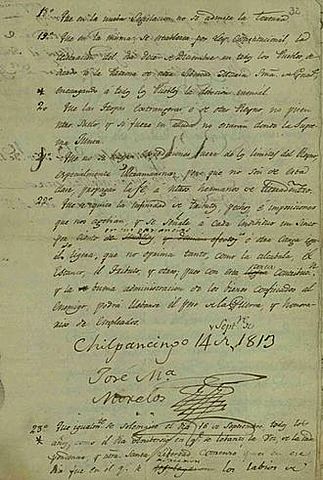 32
18º Que en la nueva legislacion no se admita la Tortura
19º Que en la misma se establesca por Ley Constitucional la
celebracion del dia doce de Diciembre en todos los Pueblos, de-
dicado a la Patrona de nra Libertad Maria Sma. de Guadl.
encargando a todos los Pueblos la devocion mensual.
20 Que las tropas Extrangeras o de otro Reyno no pisen
ntro Suelo, y si fuere en ayuda no estaran donde la Supre
ma Junta.
21º Que no se expediciones fuera de los limites del Reyno,
especialmente Ultramarinas, pero que no son de esta
clase, propagar la fe a ntros hermanos de tierradentro.
22º Que se quite la infinidad de tributos, pechos e imposiciones
que nos agobian, y se señale a cada individuo un cinco
por ciento de o otra carga igual
ligera, que no oprima tanto, como la alcabala, el
Estanco, el Tributo, y otros, pues con esta corta contribucion
y la buena administracion de los bienes confiscados al
Enemigo, podrá llebarse el peso de la Guerra, y honora-
rios de Empleados.
Chilpancingo 14 de Septe. de 1813
José Ma.
Morelos
23º Que igualmte. se solemnise el dia 16 de Septiembre todos los
años, como el dia Aniversario en qe. se levantó la Voz de la Inde-
pendencia, y nra Santa Libertad Comenzo, pues en ese
dia fue en el qe. se los labios de